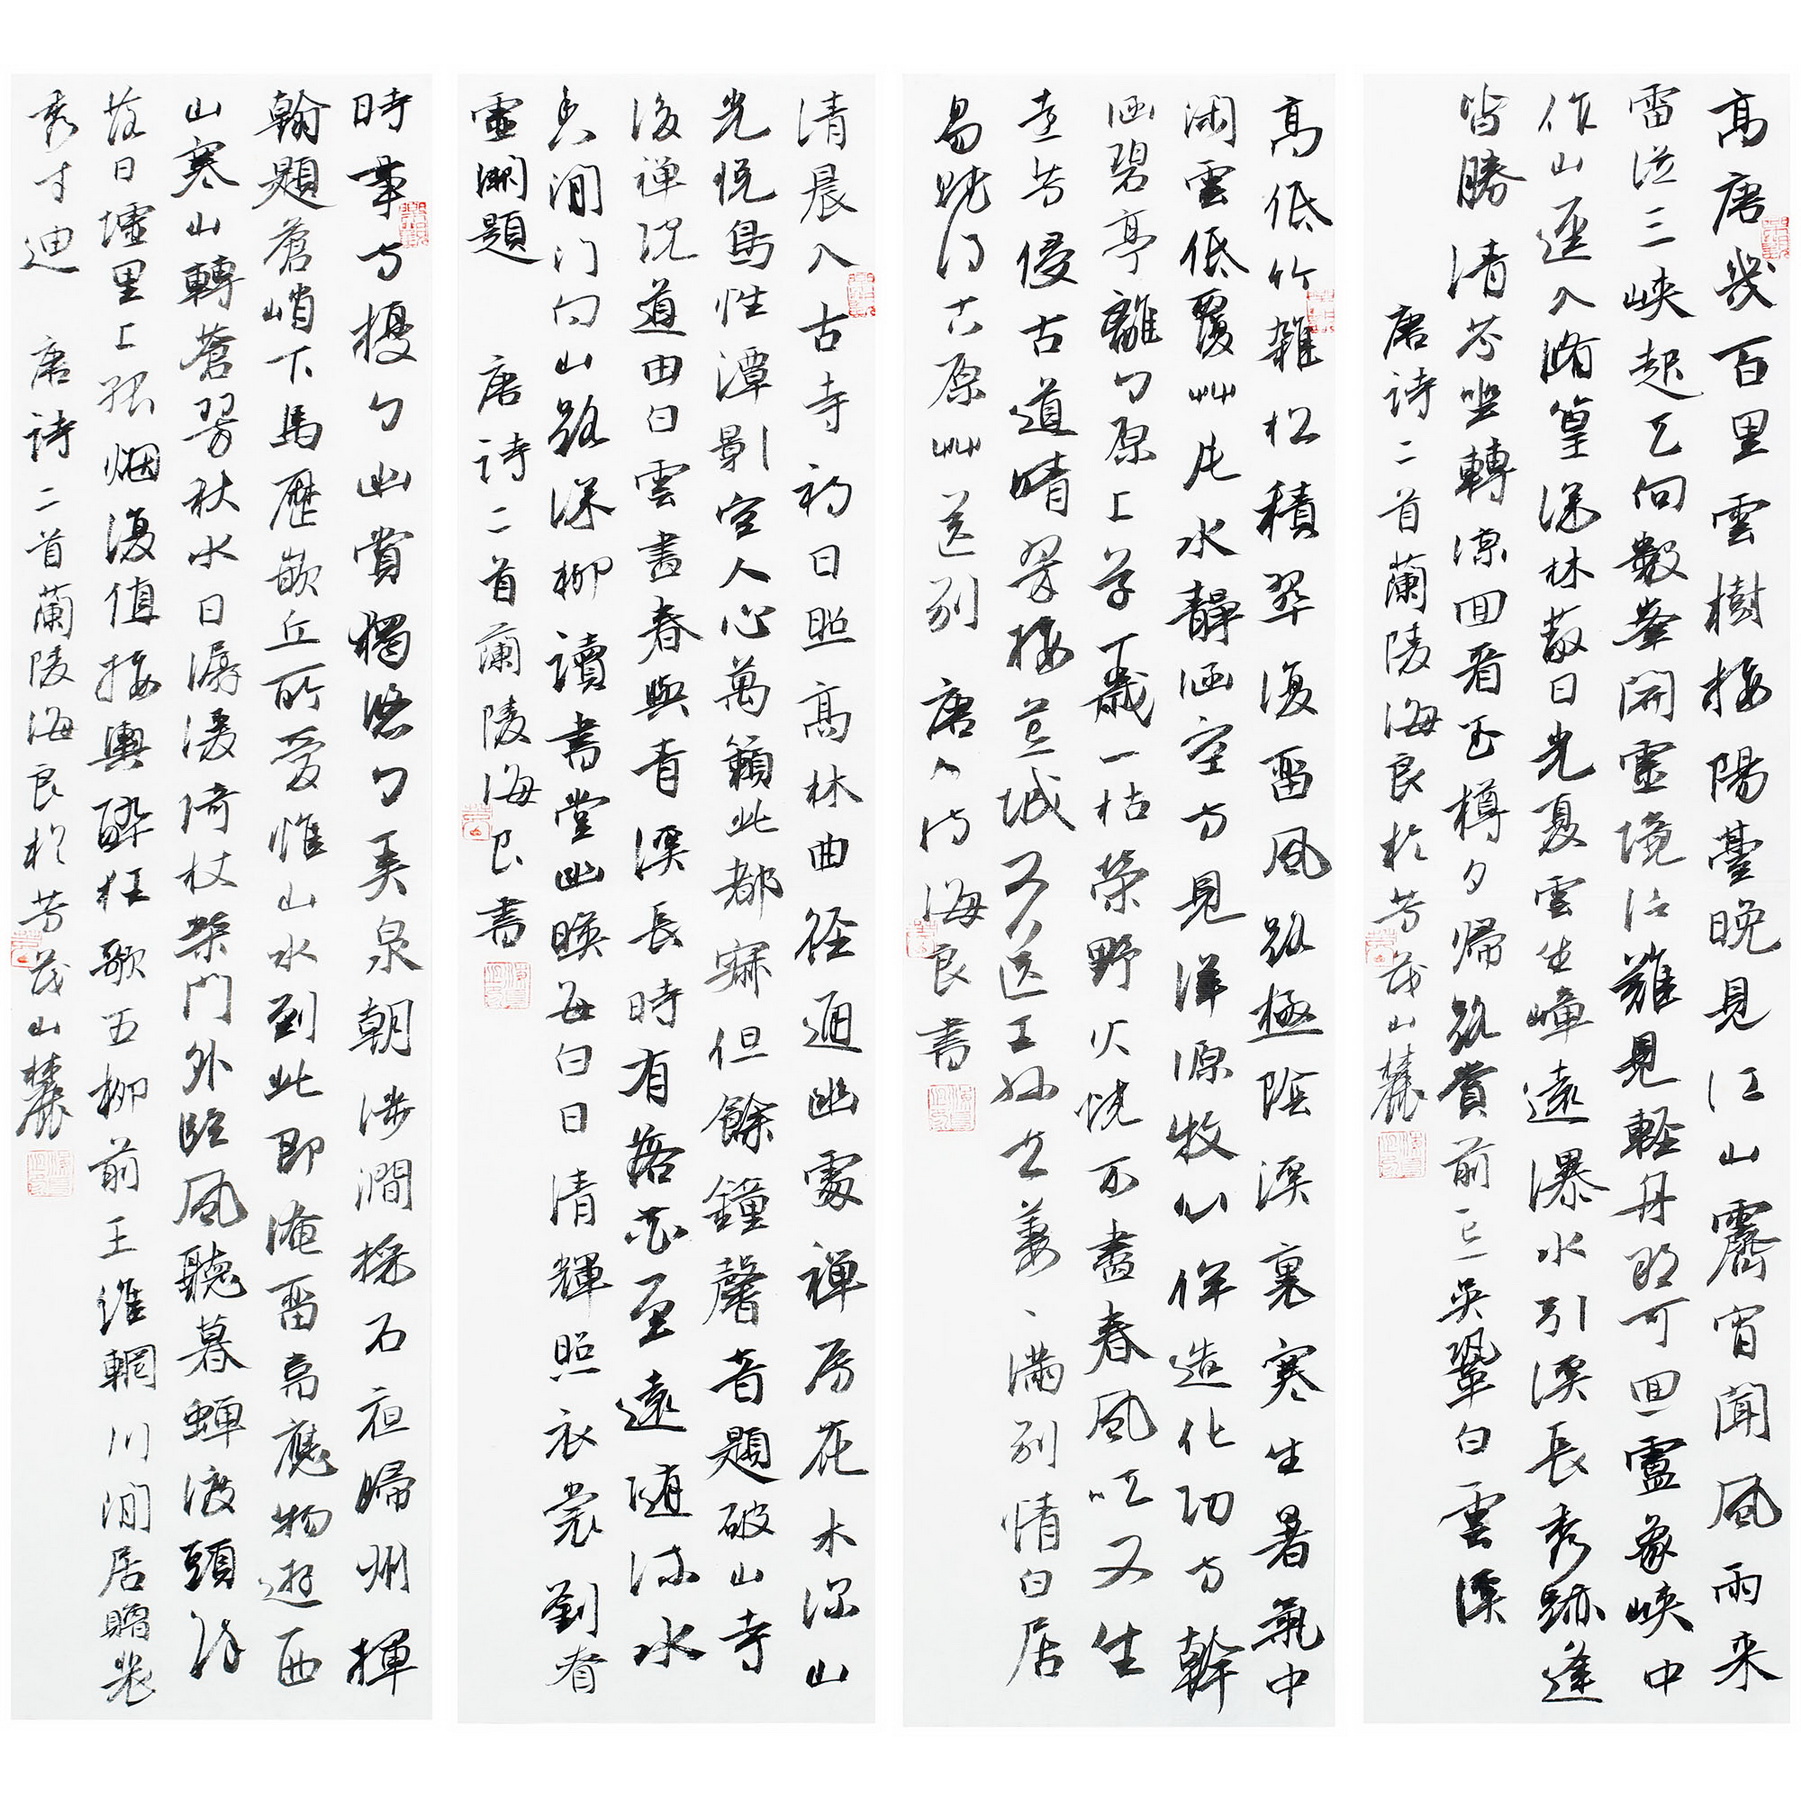 高唐幾百里雲樹接陽臺晚見江山霽宵聞風雨来
雷從三峽起天向數峯開靈境信難見輕舟那可回盧象峽中
作山逕入脩篁深林蔽日光夏雲生嶂遠瀑水引溪長秀跡逢
皆勝清芬坐轉涼回看玉樽夕歸路賞前忘吳鞏白雲溪
唐诗二首蘭陵海良於芳茂山麓
高低竹雜松積翠復留風路極陰溪裏寒生暑氣中
闲雲低覆艸片水静涵空方見洋源牧心侔造化功方幹
涵碧亭離離原上草一歲一枯榮野火燒不盡春風吹又生
遠芳侵古道晴翠接荒城又送王孫去萋萋滿别情白居
易賦得古原艸送别 唐人诗海良書
清晨入古寺初日照高林曲径通幽處禅房花木深山
光悦鳥性潭影空人心萬籟此都寂但餘鐘磬音題破山寺
後禅院道由白雲盡春與青溪長時有落花至遠随流水
香閒门向山路深柳讀書堂幽映每白日清輝照衣裳劉眘
虛闕題 唐诗二首蘭陵海良書
時事方擾擾幽賞獨悠悠弄泉朝涉澗採石夜歸州揮
翰題蒼峭下馬歷嵌丘所愛惟山水到此即淹留韋應物遊西
山寒山轉蒼翠秋水日潺湲倚杖柴門外臨風聽暮蟬渡頭餘
落日墟里上孤烟復值接輿醉狂歌五柳前王維輞川閒居贈裴
秀才迪 唐诗二首蘭陵海良於芳茂山麓